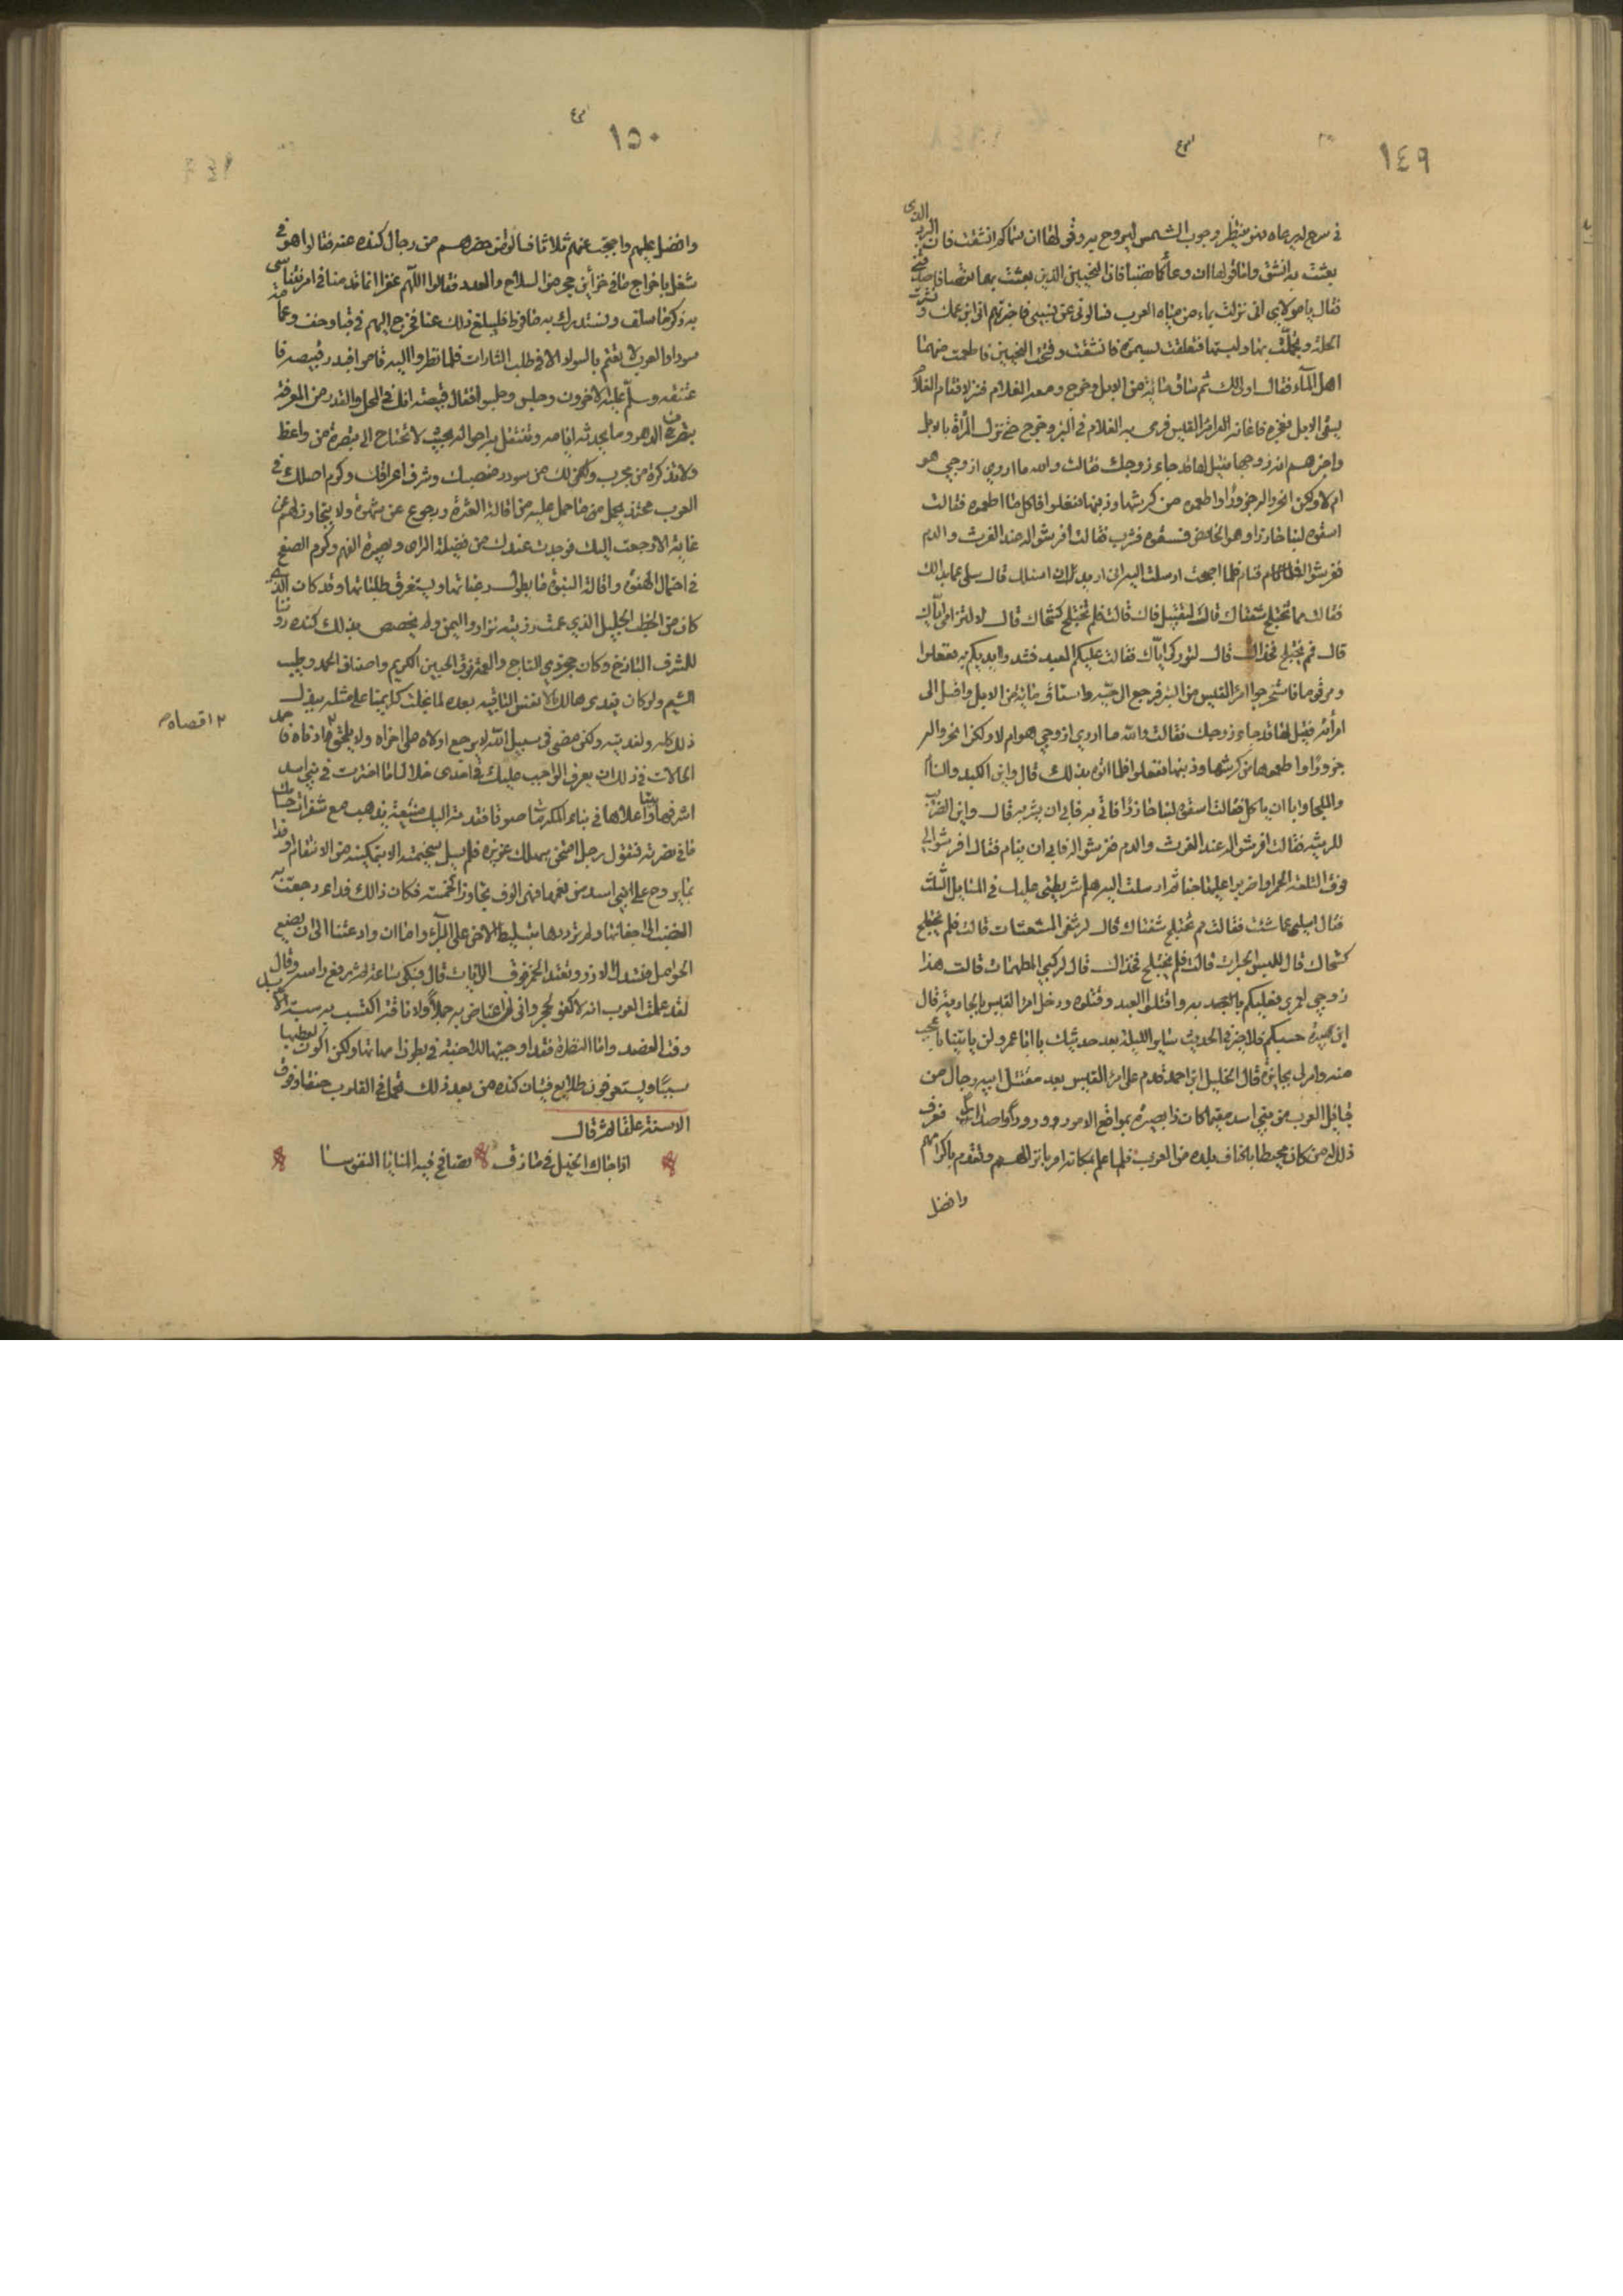 ١٤٩
في سرح لهم يرعاه فهو ينتظر وجوب الشمس ليروح به وقولها ان سماكم انشقت فان البرد الذي
بعثت به انشق واما قولها ان وعائكما نضبا فان النحيين الذين بعثت بهما نقصا فاصدقني
فقال يا مولاي اني نزلت بماء من مياه العرب فسالوني عن نسبي فاخبرتهم اني ابن عمك ونشرت
الحلة وتجملت بها ولبستها فتعلقت بسمرة فانشقت وفتحت النحيين فاطعمت منهما
اهل الماء فقال اولى لك ثم ساق ماية من الابل وخرج ومعه الغلام فنزلا فقام الغلام
يسقي الابل فعجز فاعانه امرؤ القيس فرمى به الغلام في البئر وخرج حتى نزل المرأة بالابل
واخبرهم انه زوجها فقيل لها قد جاء زوجك فقالت والله ما ادري ازوجي هو
ام لا ولكن انحروا له جزورا واطعموه من كرشها وذنبها ففعلوا فاكل ما اطعموه فقالت
اسقوه لبنا حازرا وهو الحامض فسقوه فشرب فقالت افرشوا له عند الفرث والدم
ففرشوا له فنام فلما اصبحت ارسلت اليه اني اريد ان اسئلك قال سلي عما بدا لك
فقالت مما تختلج شفتاك قال لتقبيلي فاك قالت فلم تختلج كشحاك قال لالتزامي اياك
قال فمم يختلج فخذاك قال لتوركي اياك فقالت عليكم العبد فشدوا ايديكم به ففعلوا
ومر قوم فاستخرجوا امرؤ القيس من البئر فرجع الى حيه واستاق ماية من الابل واقبل الى
امرأته فقيل لها قد جاء زوجك فقالت والله ما ادري ازوجي هو ام لا ولكن انحروا له
جزورا واطعموها من كرشها وذنبها ففعلوا فلما اتوه بذلك قال واين الكبد والسنام
والملحا وابا ان ياكل فقالت اسقوه لبنا حازرا فاتي به فابى ان يشربه قال واين الضريب
للرثيه فقالت افرشوا له عند الفرث والدم ففرشوا له فابى ان ينام فقال افرشوا لي
فوق التلعة الحمرا واضربوا عليها خبا ثم ارسلت اليه هلم شريطتي عليك في المسايل الثلث
فقال سلي عما شئت فقالت مم تختلج شفتاك قال لرشفي المشعشعات قالت فلم يختلج
كشحاك قال للبس الحبرات قالت فلم يختلج فخذاك قال لركبي المطهمات قالت هذا
زوجي لعمري فعليكم بالعبد به واقتلوا العبد وقتلوه ودخل امرؤ القيس بالجارية قال
ابن هبيرة حسبكم فلا خير في الحديث ساير الليلة بعد حديثك يا ابا عمرو ولن ياتينا باعجب
منه وامر لي بجايزة قال الخليل ابن احمد قدم على امرئ القيس بعد مقتل ابيه رجال من
قبايل العرب من بني اسد
ذلك من كان محيطا باكناف بلده من العرب فلما علم بمكانهم امر بانزالهم وتقدم باكرامهم
وافضل
١٥٠
وافضل عليهم واحتجب عنهم ثلاثا فسالوا من حضرهم من رجال كندة عنه فقالوا هو في
شغل باخراج ما في خزاين حجر من السلاح والعدد فقالوا اللهم غفرا انما قدمنا في امر نتناسى
به ذكر ما سلف ونستدرك به ما فرط فليبلغ ذلك عنا فخرج اليهم في قبا وخف وعمامة
سوداء والعرب لا تعتم بالسواد الا في طلب الثارات فلما نظروا اليه قاموا فبدر قبيصة فا
عتنقه وسلم عليه الاخرون وجلس وجلسوا فقال قبيصة انك في المحل والقدر من المعرفة
بتصرف الدهر وما يحدثه ايامه وتنتقل به احواله بحيث لا تحتاج الى تبصرة من واعظ
ولا تذكرة من مجرب ولك من سودد منصبك وشرف اعراقك وكرم اصلك في
العرب محتد يحمل من ما حمل عليه من اقالة العثرة ورجوع عن هفوة ولا يتجاوز الهمم عن
غاية الا رجعت اليك فوجدت عندك من فضيلة الراى وبصيرة الفهم وكرم الصفح
في احتمال الهفوة واقالة النبوة ما يطول رغباتها ويستغرق طلباتها وقد كان الذي
كان من الخطب الجليل الذي عمت رزيته نزارا واليمن ولم يخصص بذلك كندة دوننا
للشرف الباذخ وكان حجر ذي التاج والعمة فوق الجبين الكريم واصناف الحمد وطيب
الشيم ولو كان يفدى هالك بالانفس الباقيه بعده لما بخلت كرايمنا على مثله ببذل
ذلك كله ولفديته ولكن مضى في سبيل الله لا يرجع اولاه على اخراه ولا يلحق ٢ ادناه فاحمد
الحالات في ذلك ان يعرف الواجب عليك في احدى خلال اما اخترت في بني اسد
اشرفها بيتا واعلاها في بناء المكرمات صوتا فقدمته اليك
٢ اقصاه م
ما في نضرته فنقول رجل امتحن بهملك عزيزه فلم يسل سخيمته الا بتمكينه من الانتقام او فدا
بما يروح على بني اسد من نعمها فهي الوف تجاوز الخمسة فكان ذالك فدا رجعت به
القضب الى اجفانها ولم ترددها بتسليط الاحن على البراء واما ان وادعتنا الى ان تضع
الحوامل فتسدل الازر وتعقد الخمر فوق الرايات قال فبكى ساعة ثم رفع راسه وقال
لقد علمت العرب انه لا كفو لحجر واني لن اعتاض به جملا ولا ناقة اكتسب به سبة الابد
وفت العضد واما النظرة فقد اوجبتها الاجنة في بطون امهاتها ولكن اكون لعطبها
سببا وستعرفون طلايع فتيان كندة من بعد ذلك تحمل في القلوب حنقا وفوق
الاسنة علقا ثم قال
اذا جالت الخيل في مازق تصافح فيه المنايا النفوسا